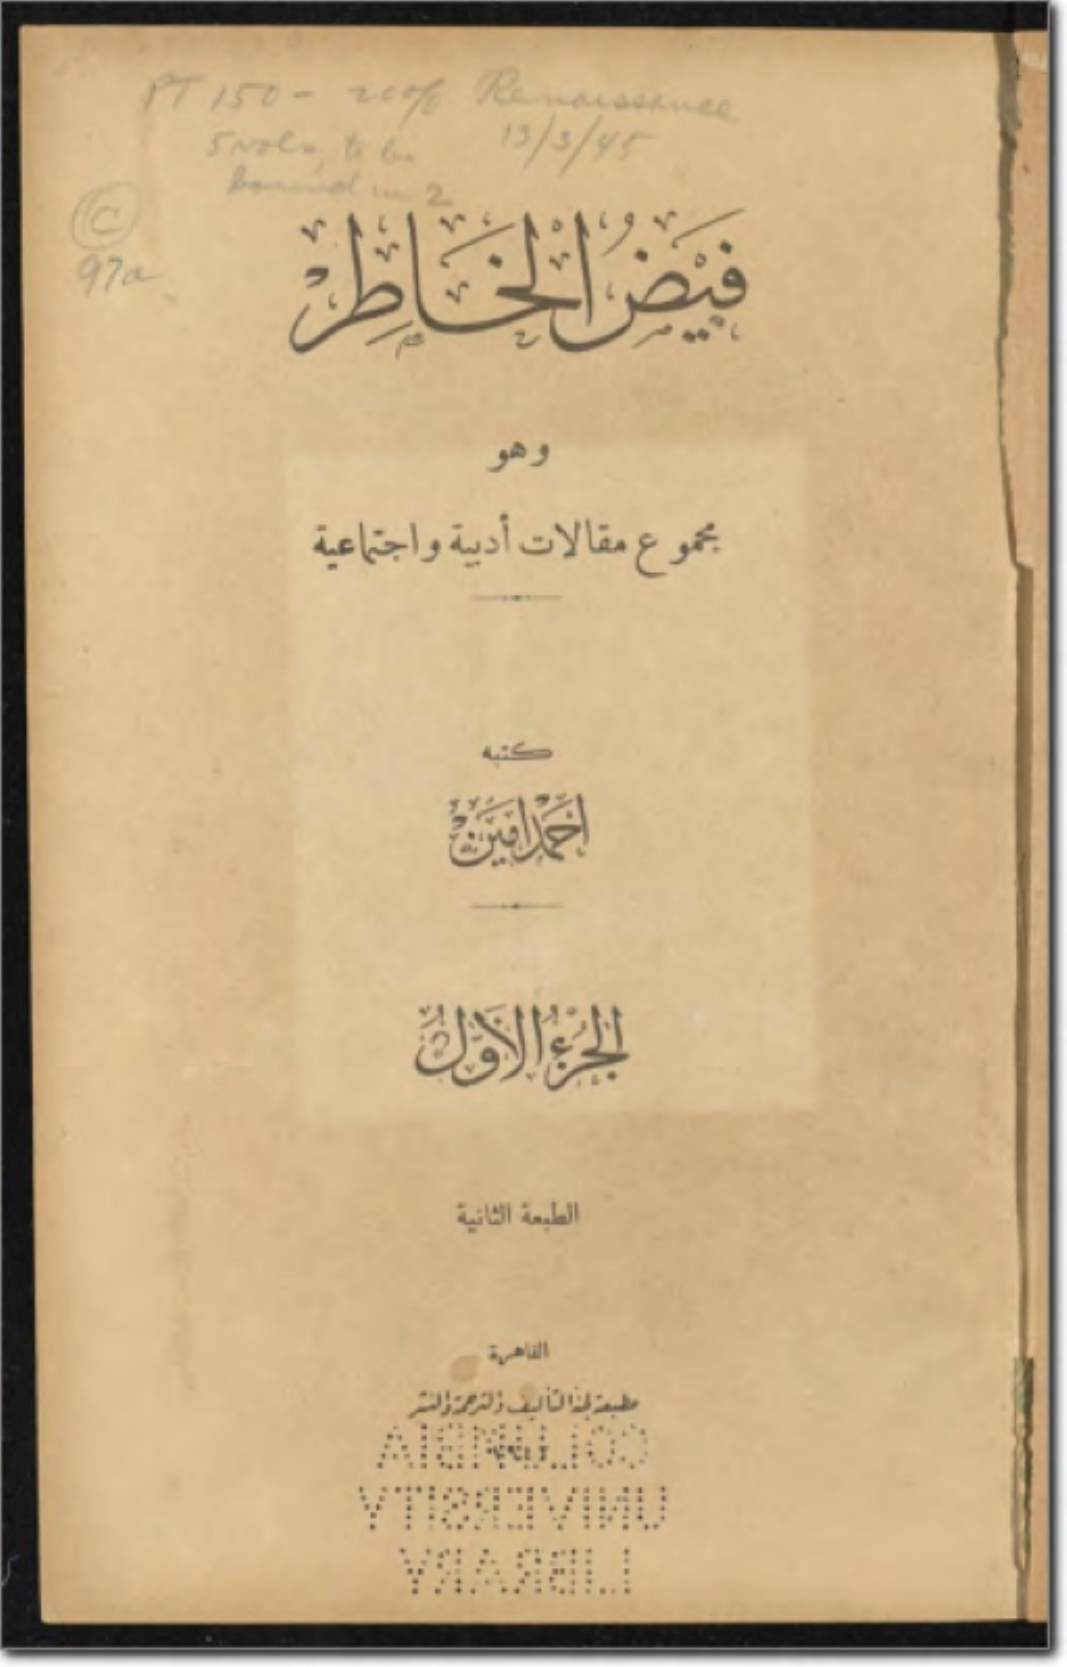 PT 150 - 20% Renaissance
5 vols, to be 13/3/45
bound in 2
C
97a
فَيْضُ الْخَاطِرِ
وهو
مجموع مقالات أدبية واجتماعية
كتبه
أحمد أمين
الجزء الأول
الطبعة الثانية
القاهرة
مطبعة لجنة التأليف والترجمة والنشر
COLUMBIA
UNIVERSITY
LIBRARY